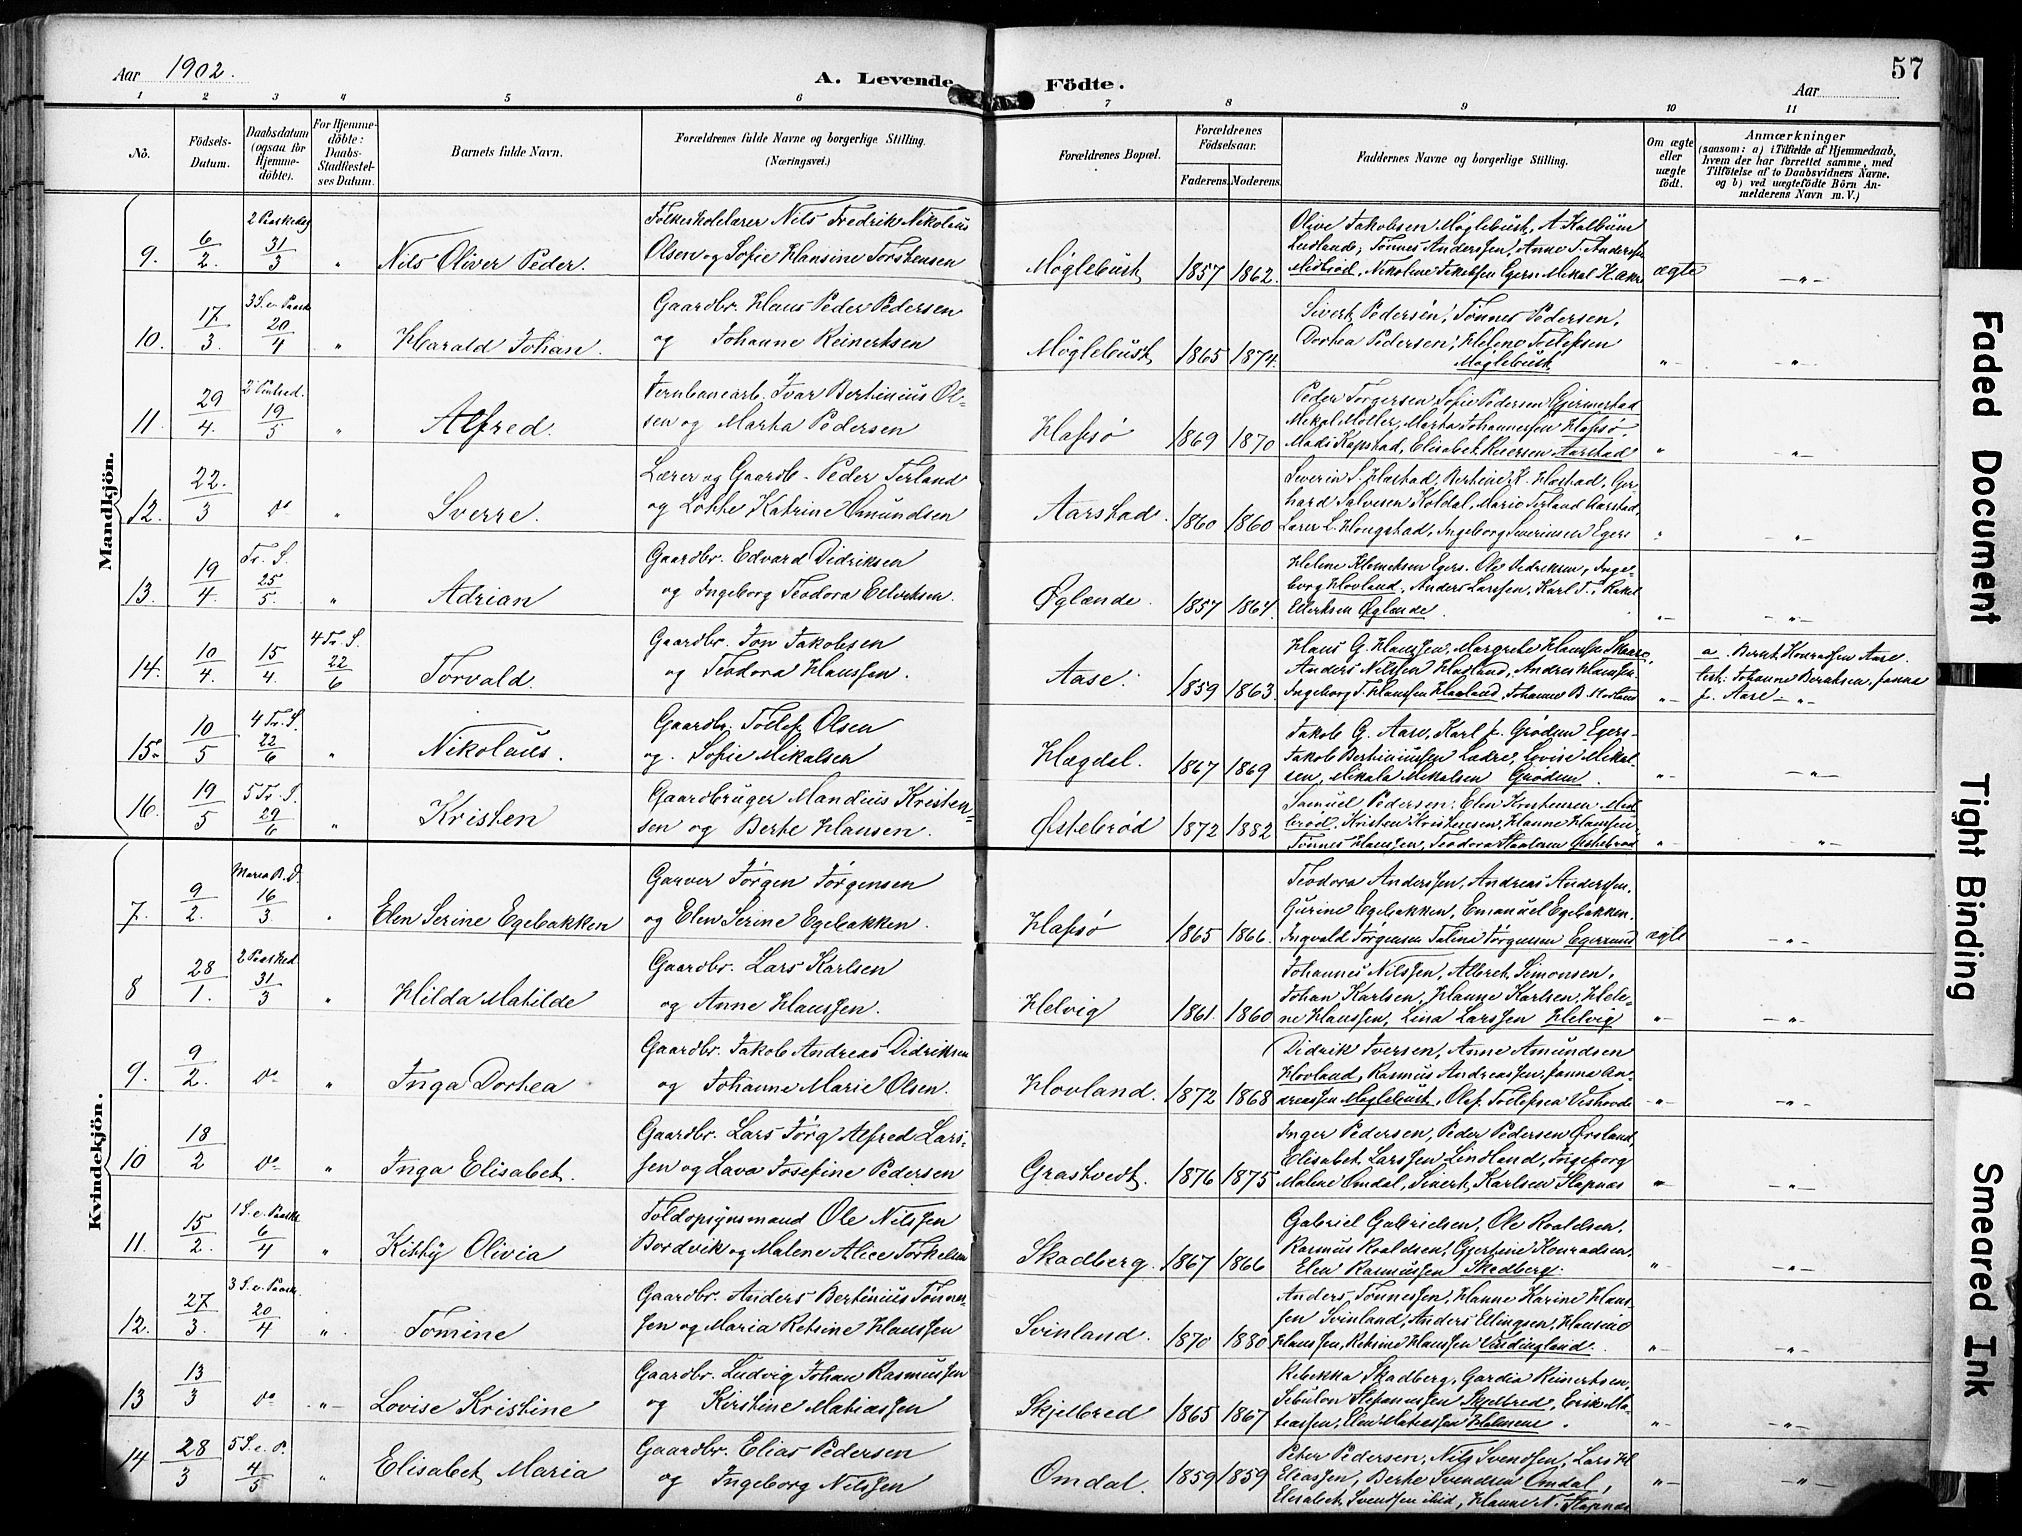 Aar 1902.
A. Levende Födte.
Aar
57
1 2 3 4 5 6 7 8 9 10 11
No.
Födsels-Datum.
Daabsdatum (ogsaa for Hjemme-döbte).
For Hjemme-döbte: Daabs-Stadfæstel-ses Datum.
Barnets fulde Navn.
Forældrenes fulde Navne og borgerlige Stilling. (Næringsvei.)
Forældrenes Bopæl.
Forældrenes Födselsaar.
Faderens. Moderens.
Faddernes Navne og borgerlige Stilling.
Om ægte eller uægte födt.
Anmærkninger
(saasom: a) i Tilfælde af Hjemmedaab, hvem der har forrettet samme, med Tilföielse af to Daabsvidners Navne. og b) ved uægtefödte Börn An-melderens Navn m. V.)
Mandkjön.
9. 6/2. 2 Paaskedag 31/3 " Nils Oliver Peder.
Folkeskolelærer Nils Fredrik Nikolaus
Olsen og Sofie Hansine Torstensen
Møglebust 1857 1862.
Olive Jakobsen Møglebust, A Kalbum
Tønnes Anderssen, Anne T. Anderssen
Midbrød, Nikoline Jakobsen Egers. Mikal
ægte -"-
10. 17/3. 3 S. e. Paaske 20/4 " Harald Johan.
Gaardbr. Hans Peder Pedersen
og Johanne Reinertsen
Møglebust 1865 1874.
Sivert Pedersen, Tønnes Pedersen,
Dorhea Pedersen, Helene Tollefsen
Møglebust
"- -"-
11. 29/4. 2 Pintsed. 19/5 " Alfred.
Jernbanearb. Ivar Bertinius Ol-
sen og Marta Pedersen
Hafsø 1869 1870
Peder Torgersen, Sofie Pedersen Gjermestad
Mikal Møller, Marta Johannessen Hafsø
Elisabet Aarstad
" -"-
12. 22./3 do " Sverre.
Lærer og Gaardb. Peder Terland
og Lotte Katrine Omundsen
Aarstad. 1860 1860
Severin S. Hastad, Bertine K. Hastad, Ger-
hard Salvesen Koldal, Marie Terland Aarstad,
Lærer L. Hougstad, Ingeborg Severinsen Egers
" -"-
13. 19/4. Tr. S. 25/5. " Adrian
Gaardbr. Edvard Didriksen
og Ingeborg Teodora Eilertsen.
Øglænde. 1857 1864.
Helene Klemetsen Egers. Ole Didriksen, Inge-
borg Hovland, Anders Larssen, Karl T., Rakel
Eilertsen Øglænde.
"- -"-
14. 10/4. 15/4. 4 Tr. S. 22/6 Torvald.
Gaardbr. Jon Jakobsen
og Teodora Hanssen.
Aase. 1859 1863.
Hans G. Hanssen, Margrete Hanssen Skaare,
Anders Nilssen Hadland, Andrea Hanssen,
Ingeborg T. Hanssen Hadland, Johanne B. Hovland
"-
a. Bernt Konradsen Aase.
test: Johanne Berntsen, Janna
J. Aase -"-
15. 10/5 4 Tr. S. 22/6 " Nikolaus.
Gaardbr. Tollef Olsen
og. Sofie Mikalsen
Hægdal. 1867 1869
Jakob G. Aase, Karl J. Grødem Egers-
Jakob Bertiniussen Lædre, Lovise Mikal-
sen, Mikala Mikalsen Grødem.
"- -"-
16. 19/5 5 Tr. S. 29/6 " Kristen
Gaardbruger Mandius Kristen-
sen og Berte Hansen.
Østebrød 1872 1882
Samuel Pedersen. Elen Kristensen Mid-
brød, Kristen Kristensen, Hanne Hanssen
Tønnes Hanssen, Teodora Østebrød
"- "-
Kvindekjön.
7. 9/2. Maria B. D. 16/3 " Elen Serine Egebakken
Garver Jørgen Jørgensen
og Elen Serine Egebakken.
Hafsø 1865 1866.
Teodora Anderssen, Andreas Anderssen,
Gurine Egebakken, Emanuel Egebakken.
Ingvald Jørgensen Taline Jørgensen Egersund
ægte -"-
8 28/1. 2 Paasked. 31/3 " Hilda Matilde
Gaardbr. Lars Karlsen
og Anne Hanssen.
Helvig 1861. 1860
Johannes Nilssen, Albret Simonsen,
Johan Karlsen, Hanne Karlsen, Hele-
ne Hanssen, Lina Larssen Helvig
"- -"-
9. 9/2. do " Inga Dorhea
Gaardbr. Jakob Andreas Didriksen
og Johanne Marie Olsen.
Hovland. 1872 1868
Didrik Iversen, Anne Amundsen
Hovland, Rasmus Andreassen, Janna An-
dreassen Møglebust, Olef Tollefsen Vestvode
"- -"-
10 18/2 do " Inga Elisabet.
Gaardbr. Lars Jørg Alfred Lars-
sen og Lava Josefine Pedersen
Grastvedt. 1876 1875
Inger Pedersen, Peder Pedersen Ørsland,
Elisabet Larssen Lindland, Ingeborg
Malene Omdal, Sivert Karlsen Slapnæs
"- -"-
11. 15/2. 1 S. e. Paaske 6/4 " Kitty Olivia
Toldopsynsmand Ole Nilssen
Bordvik og Malene Alice Torkelsen
Skadberg. 1867 1866
Gabriel Gabrielsen, Ole Roaldsen,
Rasmus Roaldsen, Gjertine Konradsen,
Elen Rasmussen Skadberg.
"- -"-
12. 27/3. 3 S. e. Paaske 20/4 " Tomine
Gaardbr. Anders Bertinius Tønnes-
sen og Maria Retsine Hanssen
Svinland. 1870 1880
Anders Tønnessen, Hanne Karine Hans-
sen Svinland, Anders Ellingsen, Hansine
Hanssen, Retsine Hanssen
"- "-
13 13/3 do "- Lovise Kristine
Gaardbr. Ludvig Johan Rasmussen
og Kirstine Matiassen
Skjelbred 1865 1867
Rebekka Skadberg, Gardia Reinertsen,
Sebulon Stefanussen Skjelbred, Erik Ma-
tiassen, Elen Matiassen
"- -"-
14 28/3 5 S. e. P. 4/5 " Elisabet Maria
Gaardbr. Elias Pedersen
og Ingeborg Nilssen
Omdal. 1859 1859
Peter Pedersen, Nils Svendsen, Lars H
Eliassen, Berte Svendsen Omdal,
Elisabet Svendsen ibid, Hanne N. Slapnæs
"- -"-
Faded Document
Tight Binding
Smeared Ink